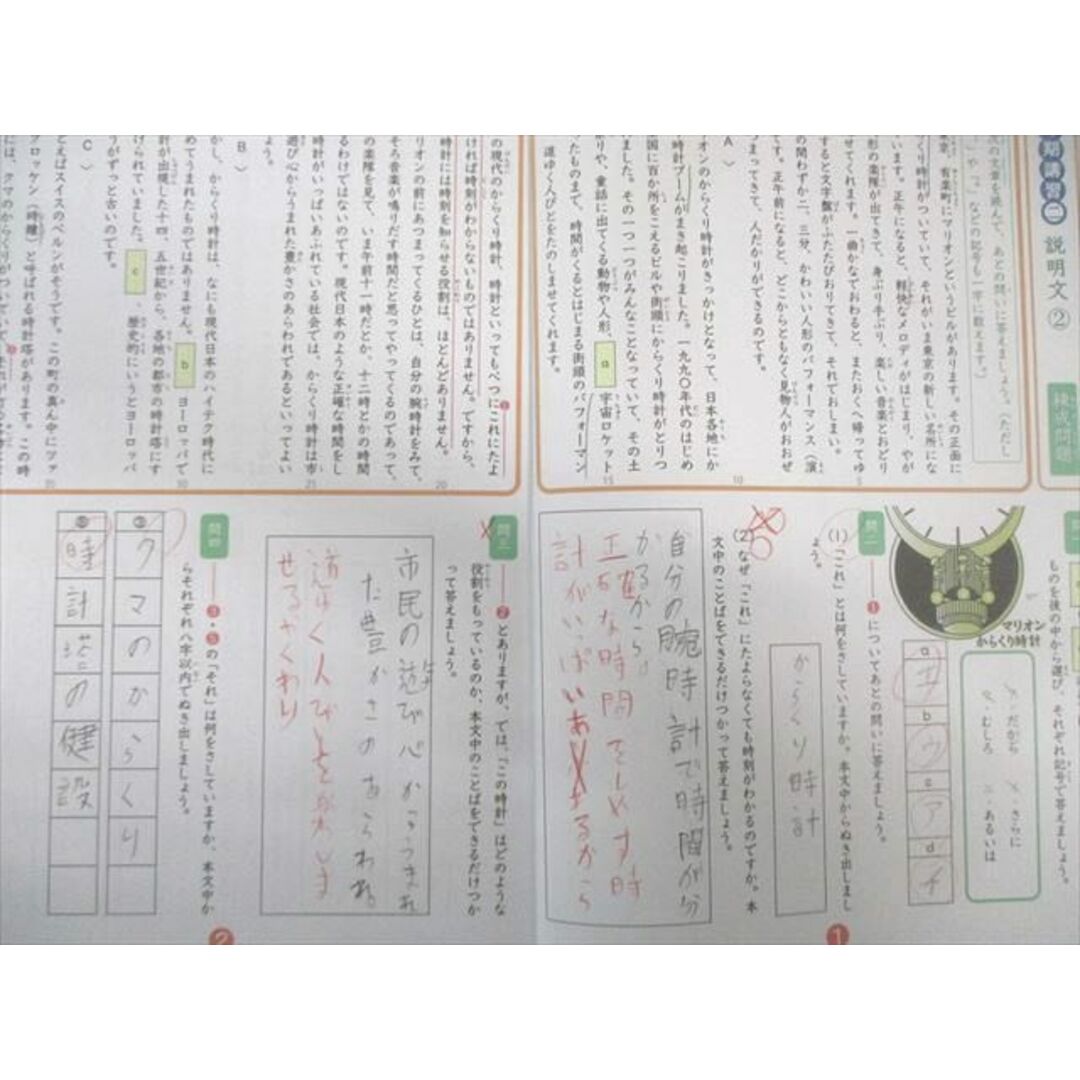 期講習㊁ 説明文②
練成問題
の文章を読んで、あとの問いに答えましょう。（ただし
や「。」などの記号も一字に数えます。）
東京、有楽町にマリオンというビルがあります。その正面に
くり時計がついていて、それがいま東京の新しい名所にな
ています。正午になると、軽快なメロディがはじまり、やが
形の楽隊が出てきて、身ぶり手ぶり、楽しい音楽とおどり
せてくれます。一曲かなでおわると、またおくへ帰ってゆ
すると文字盤がふたたびおりてきて、それでおしまい。
の間わずか二、三分、かわいい人形のパフォーマンス（演
です。正午前になると、どこからともなく見物人がおおぜ
つまってきて、人だかりができるのです。
A 〉
オンのからくり時計がきっかけとなって、日本各地にか
時計ブームがまき起こりました。一九九〇年代のはじめ
国に百か所をこえるビルや街頭にからくり時計がとりつ
ました。その一つ一つがみんなことなっていて、その土
祭りや、童話に出てくる動物や人形、 a 宇宙ロケット
ったものまで、時間がくるとはじまる街頭のパフォーマン
道ゆく人びとをたのしませてくれます。
5
10
15
の現代のからくり時計、時計といってもべつにこれにたよ
ければ時刻がわからないものではありません。ですから、
時計には時刻を知らせる役割は、ほとんどありません。
リオンの前にあつまってくるひとは、自分の腕時計をみて、
そろ音楽が鳴りだす時間だと思ってやってくるのであって、
の楽隊を見て、いま午前十一時だとか、十二時とかの時間
るわけではないのです。現代日本のような正確な時間をし
時計がいっぱいあふれている社会では、からくり時計は市
遊び心からうまれた豊かさのあらわれであるといってよい
ょう。
B 〉
かし、からくり時計は、なにも現代日本のハイテク時代に
めてうまれたものではありません。 b ヨーロッパで
計が出現した十四、五世紀から、各地の都市の時計塔にす
けられていました。 c 、歴史的にいうとヨーロッパ
うがずっと古いのです。
C 〉
とえばスイスのベルンがそうです。この町の真ん中にツァ
グロッケン（時鐘）と呼ばれる時計塔があります。この時
20
25
30
35
ものを後の中から選び、それぞれ記号で答えましょう。
ア・だから
イ・さらに
ウ・むしろ
エ・あるいは
a
エ
b
ウ
c
ア
d
イ
マリオン
からくり時計
問二
❶についてあとの問いに答えましょう。
(1)「これ」とは何をさしていますか。本文中からぬき出しまし
ょう。
からくり時計
(2) なぜ「これ」にたよらなくても時刻がわかるのですか。本
文中のことばをできるだけつかって答えましょう。
自分の腕時計で時間が分
かるから。
正確な時間をしめす時
計がいっぱいあ
るから
問三
❷とありますが、では、「この時計」はどのような
役割をもっているのか、本文中のことばをできるだけつか
って答えましょう。
市民の遊び心からうまれ
た豊かさのあらわれ
道ゆく人びとをたのしま
せるやくわり
問四
❸・❺の「それ」は何をさしていますか、本文中か
らそれぞれ八字以内でぬき出しましょう。
クマのからくり
時計塔の建設
1
2